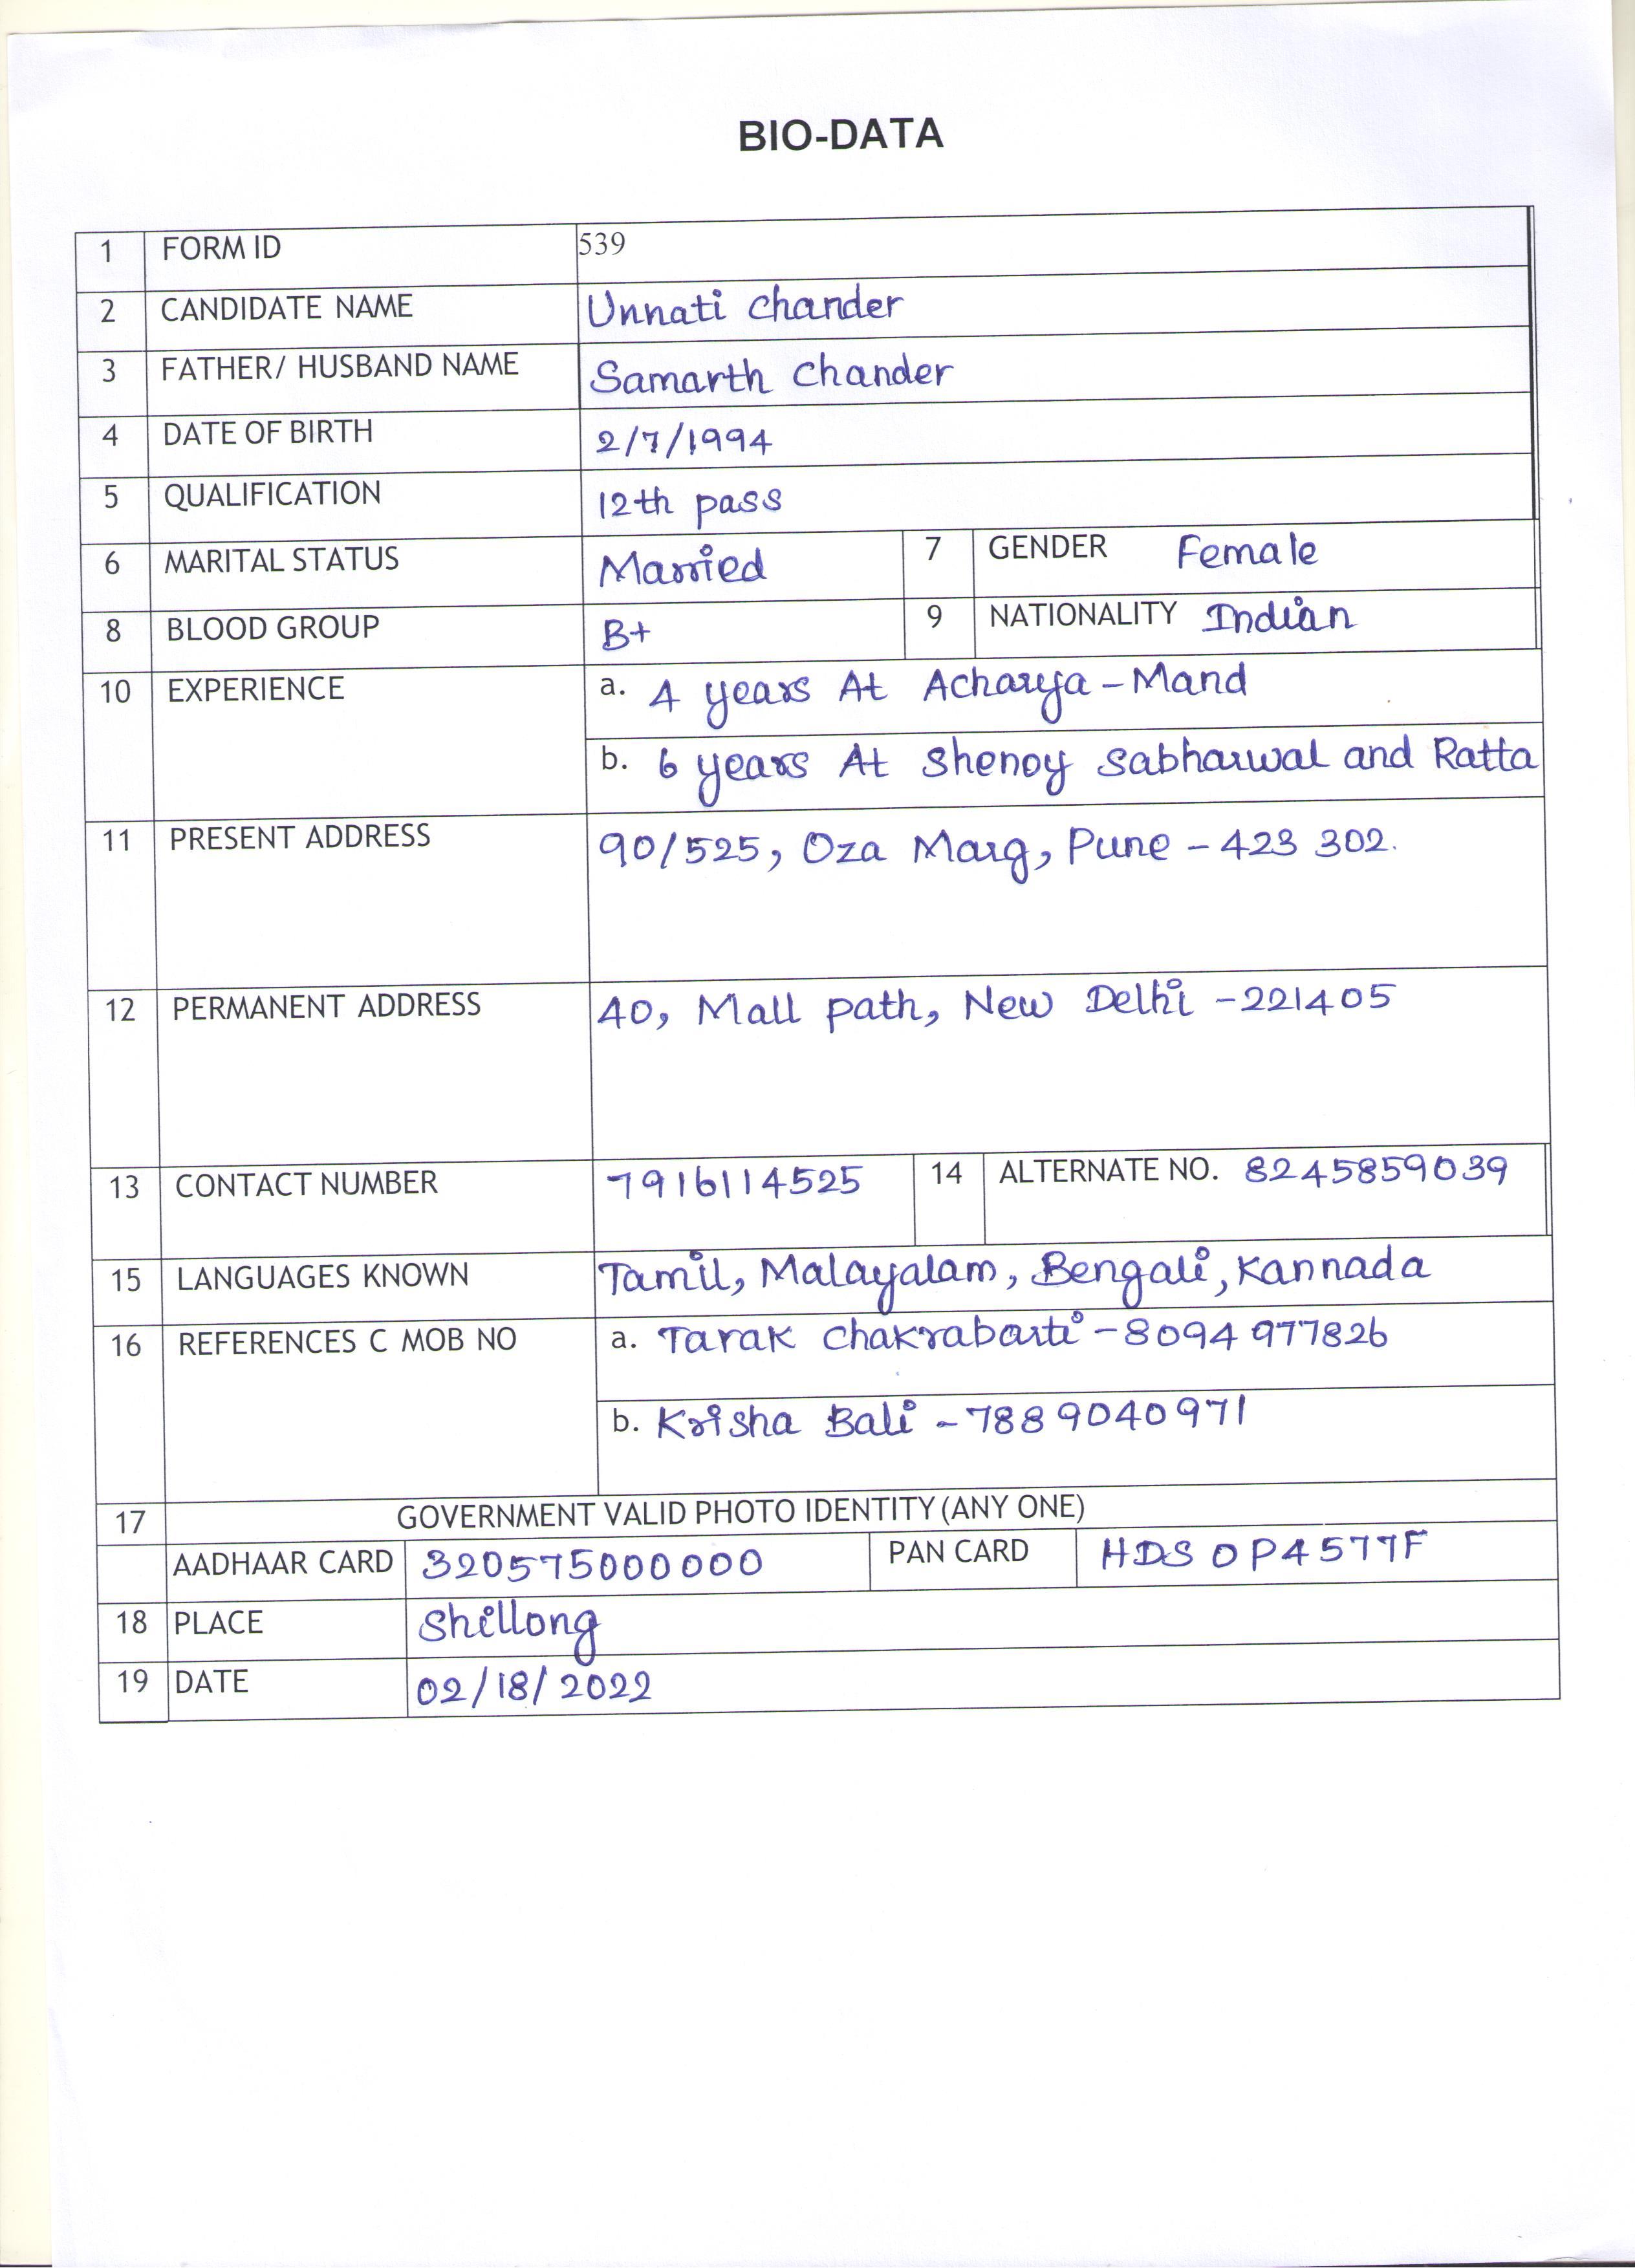 BIO-DATA
1 FORM ID 539
2 CANDIDATE NAME Unnati Chander
3 FATHER/ HUSBAND NAME Samarth Chander
4 DATE OF BIRTH 2/7/1994
5 QUALIFICATION 12th pass
6 MARITAL STATUS Married 7 GENDER Female
8 BLOOD GROUP B+ 9 NATIONALITY Indian
10 EXPERIENCE a. 4 years At Acharya-Mand
b. 6 years At Shenoy Sabharwal and Ratta
11 PRESENT ADDRESS 90/525, Oza Marg, Pune - 423 302.
12 PERMANENT ADDRESS 40, Mall path, New Delhi -221405
13 CONTACT NUMBER 7916114525 14 ALTERNATE NO. 8245859039
15 LANGUAGES KNOWN Tamil, Malayalam, Bengali, Kannada
16 REFERENCES C MOB NO a. Tarak Chakrabarti -8094977826
b. Krisha Bali -7889040971
17 GOVERNMENT VALID PHOTO IDENTITY(ANY ONE)
AADHAAR CARD 320575000000 PAN CARD HDSOP4577F
18 PLACE Shillong
19 DATE 02/18/2022